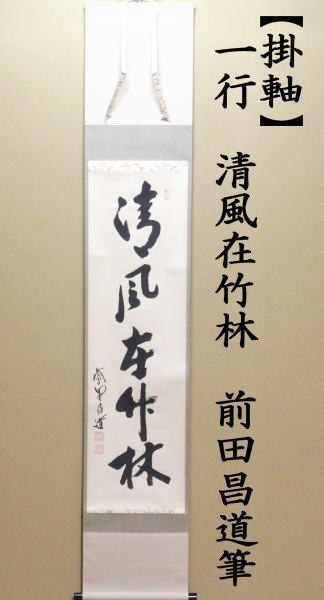 【掛軸】
一行　清風在竹林　前田昌道筆
清風在竹林